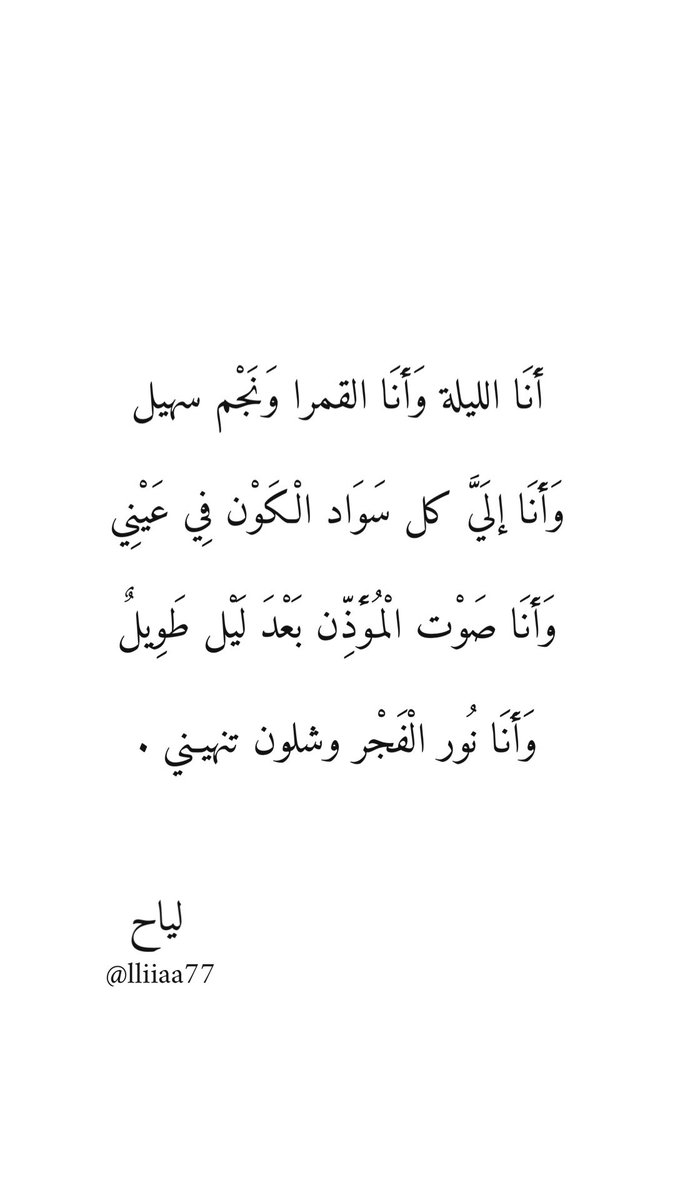 أَنَا الليلة وَأَنَا القمرا وَنَجْم سهيل
وَأَنَا إلَيَّ كل سَوَاد الْكَوْن فِي عَيْنِي
وَأَنَا صَوْت الْمُؤَذِّن بَعْدَ لَيْل طَوِيلٌ
وَأَنَا نُور الْفَجْر وشلون تنهيني .
لياح
@lliiaa77